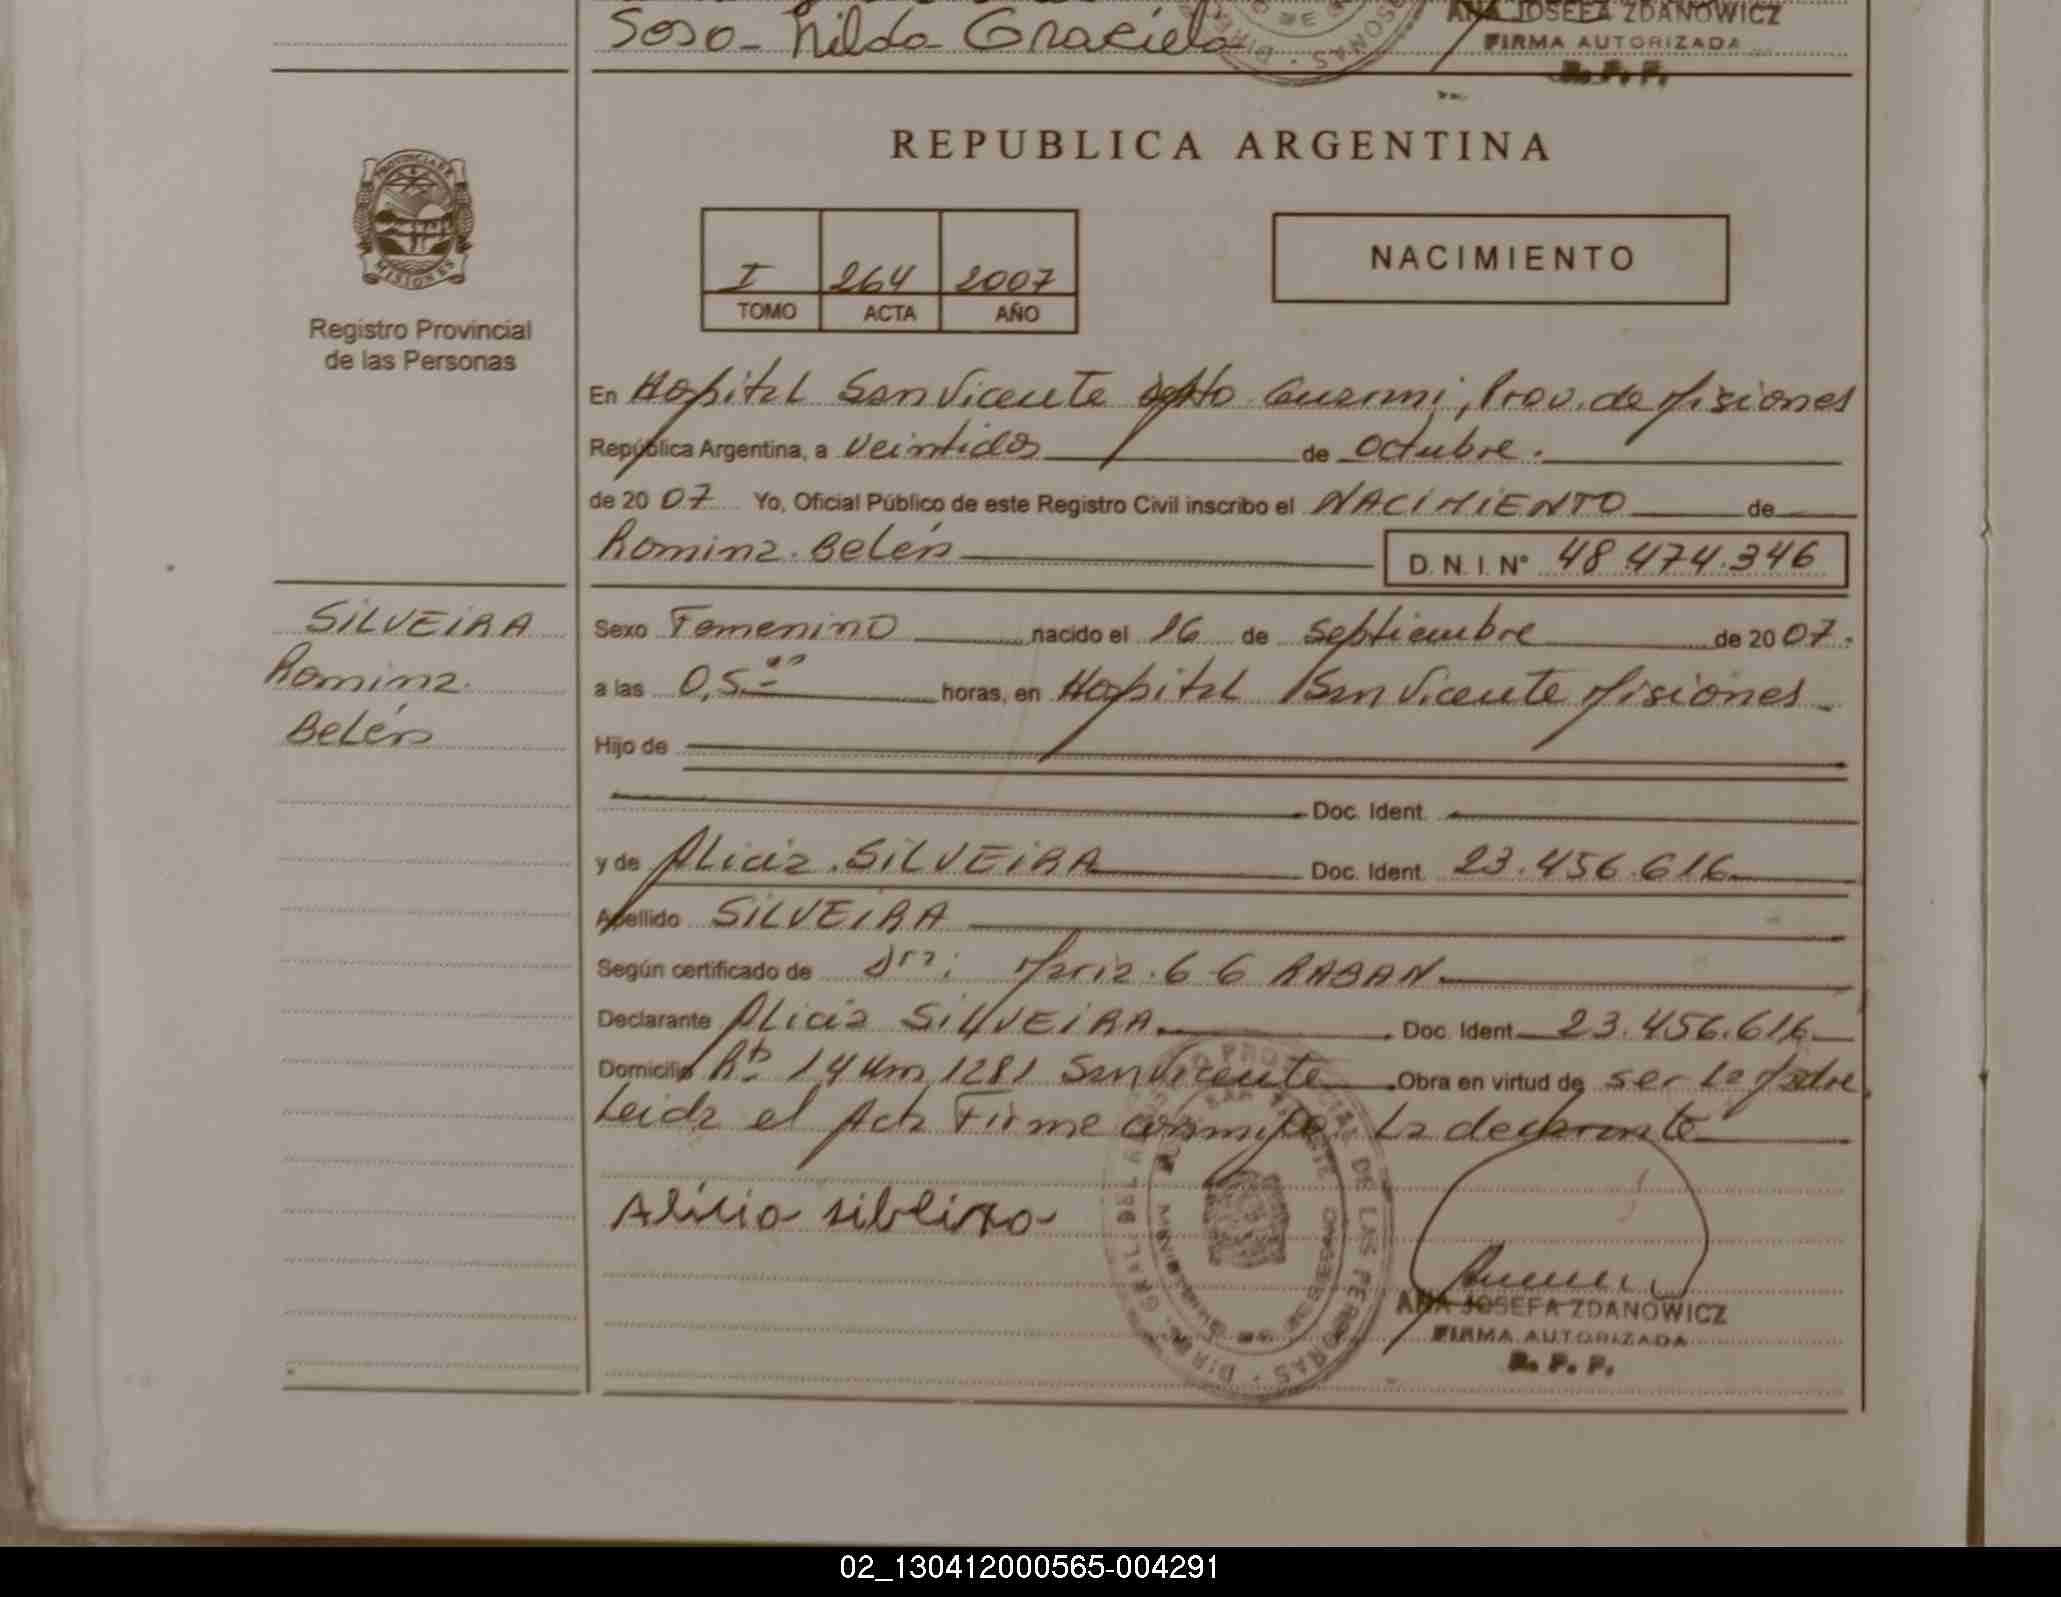 Soso Nilda Graciela
ANA JOSEFA ZDANOWICZ
FIRMA AUTORIZADA
R. P. P.
REPUBLICA ARGENTINA
PROVINCIA DE
MISIONES
Registro Provincial
de las Personas
I 264 2007
TOMO ACTA AÑO
NACIMIENTO
En Hospital San Vicente Dpto Guarani, Prov. de Misiones
República Argentina, a veintidos de octubre.
de 2007 Yo, Oficial Público de este Registro Civil inscribo el NACIMIENTO de
Romina Belén D.N.I. N° 48.474.346
SILVEIRA
Romina
Belén
Sexo Femenino nacido el 16 de septiembre de 2007.
a las 0,5 horas, en Hospital San Vicente Misiones
Hijo de
Doc. Ident.
y de Alicia SILVEIRA Doc. Ident. 23.456.616
Apellido SILVEIRA
Según certificado de Dra: Maria
Declarante Alicia SILVEIRA Doc. Ident. 23.456.616
Domicilio Rta 14 Km 1281 San Vicente Obra en virtud de ser la Madre
Leida el Acta Firma conmigo La declarante
Alicia silbeira
ANA JOSEFA ZDANOWICZ
FIRMA AUTORIZADA
R. P. P.
02_130412000565-004291